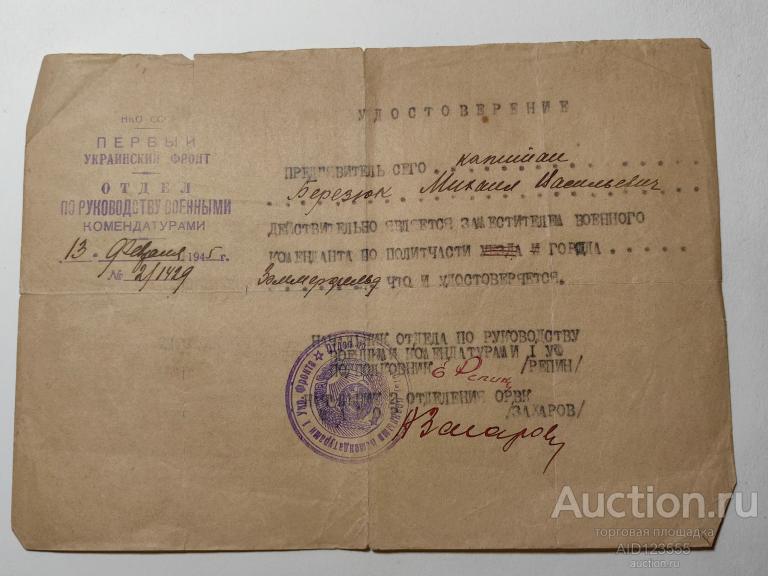 НКО СССР
ПЕРВЫЙ
УКРАИНСКИЙ ФРОНТ
ОТДЕЛ
ПО РУКОВОДСТВУ ВОЕННЫМИ
КОМЕНДАТУРАМИ
13 Февраля 1945 г.
№ 2/1429
УДОСТОВЕРЕНИЕ
ПРЕД'ЯВИТЕЛЬ СЕГО капитан
Березюк Михаил Васильевич
ДЕЙСТВИТЕЛЬНО ЯВЛЯЕТСЯ ЗАМЕСТИТЕЛЕМ ВОЕННОГО
КОМЕНДАНТА ПО ПОЛИТЧАСТИ УЕЗДА И ГОРОДА
Заммерфельд ЧТО И УДОСТОВЕРЯЕТСЯ.
НАЧАЛЬНИК ОТДЕЛА ПО РУКОВОДСТВУ
ВОЕННЫМИ КОМЕНДАТУРАМИ I УФ
ПОДПОЛКОВНИК Репин /РЕПИН/
НАЧАЛЬНИК 2 ОТДЕЛЕНИЯ ОРВК
Захаров /ЗАХАРОВ/
Auction.ru
торговая площадка
AID123555
auction.ru